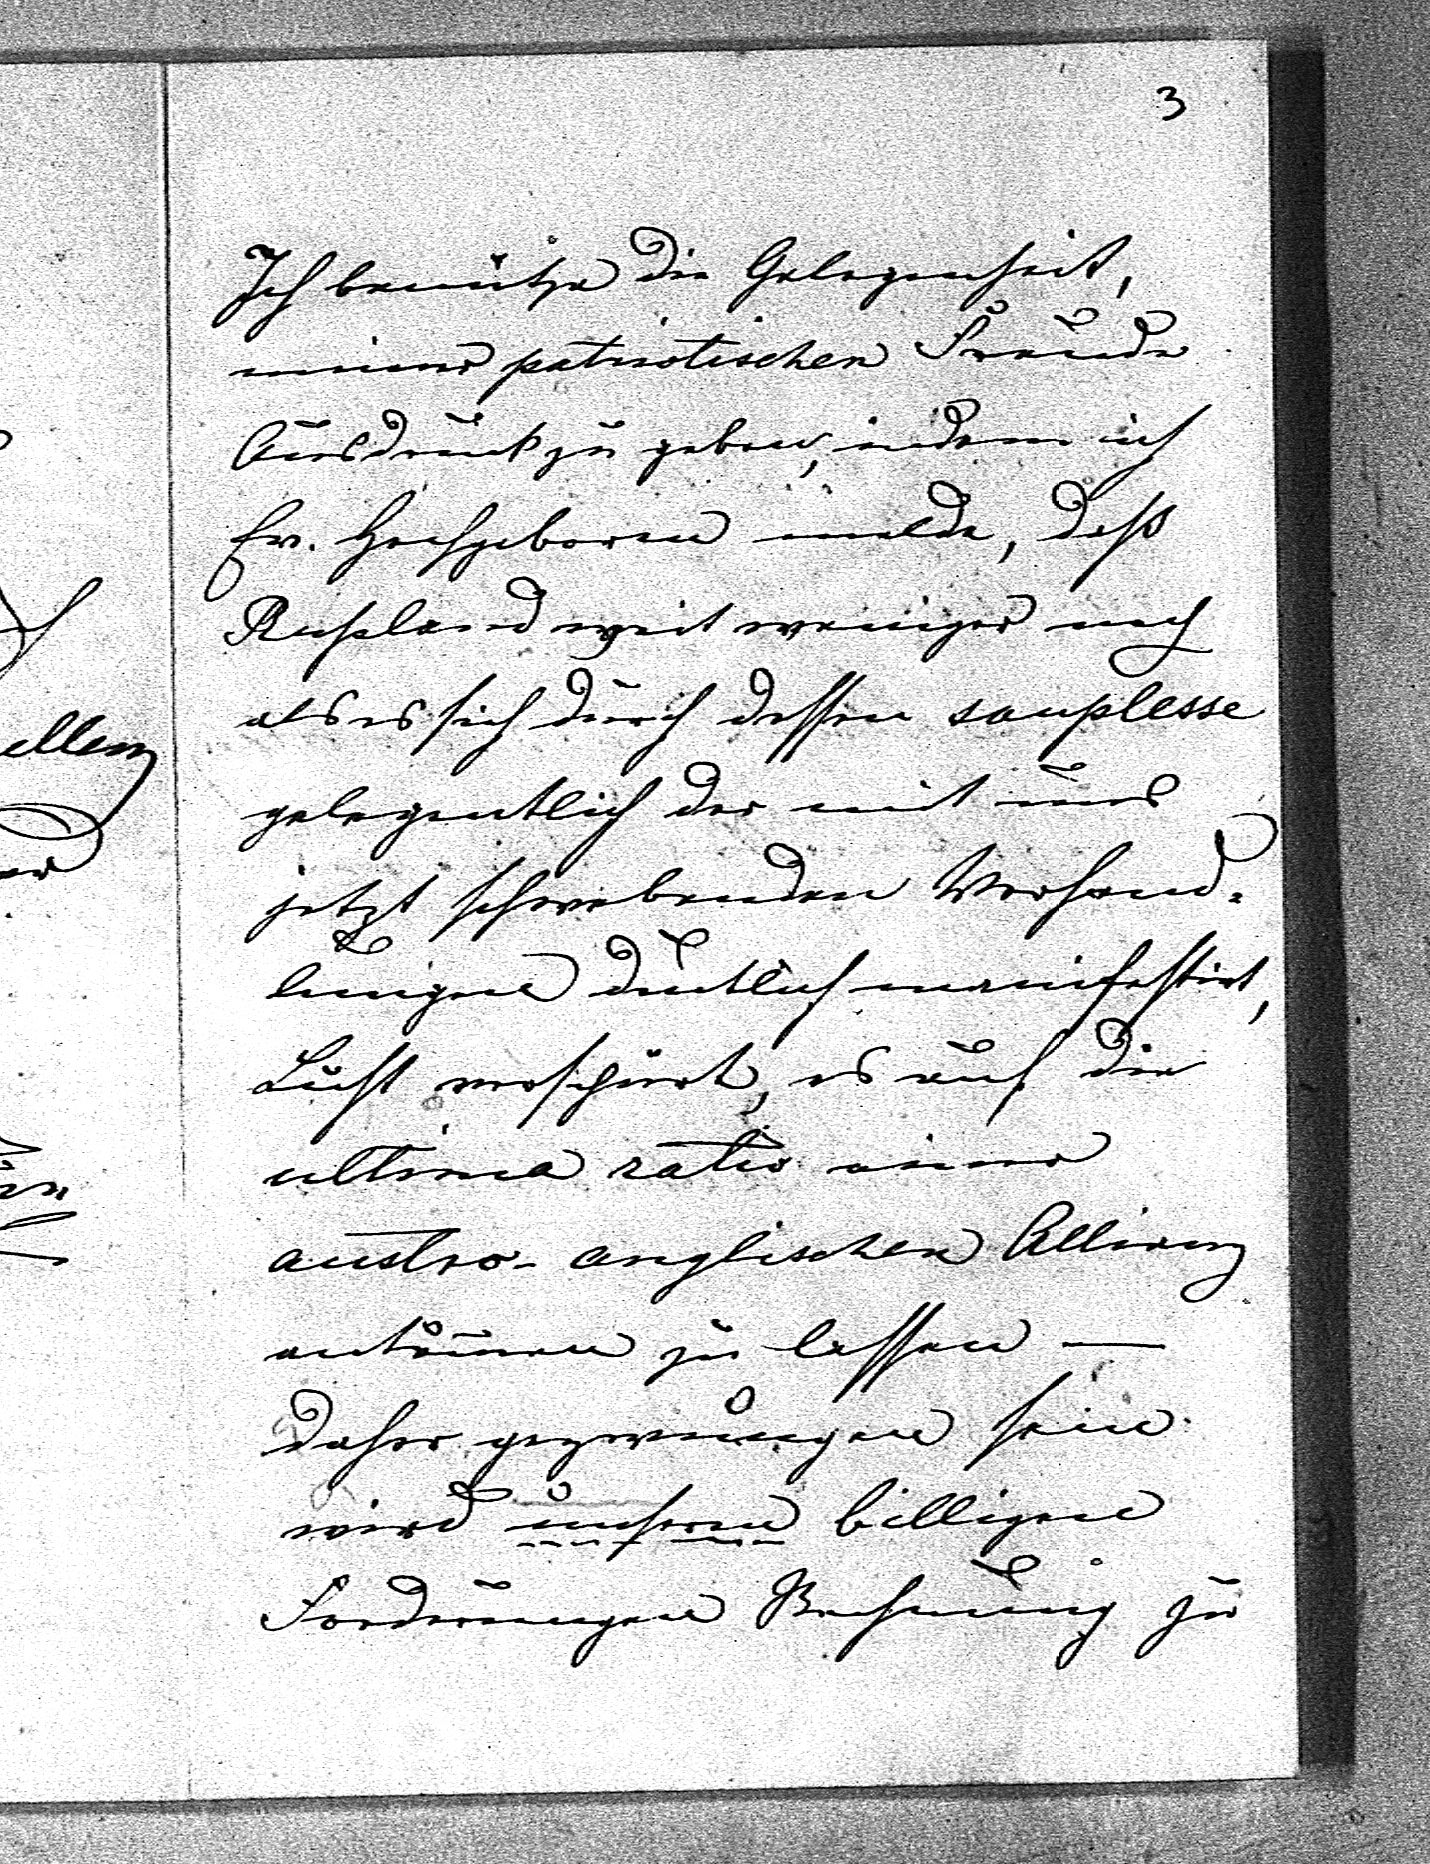 3
Ich benütze die Gelegenheit,
meiner patriotischen Freude
Ausdruck zu geben, indem ich
Ew. Hochgeboren melde, daß
Rußland weit weniger noch
als es sich durch dessen souplesse
gelegentlich der mit uns
jetzt schwebenden Verhand-
lungen deutlich manifestirt,
Lust verspürt, es auf die
ultima ratio einer
austro-anglischen Allianz
ankommen zu lassen —
daher gezwungen sein
wird unseren billigen
Forderungen Rechnung zu